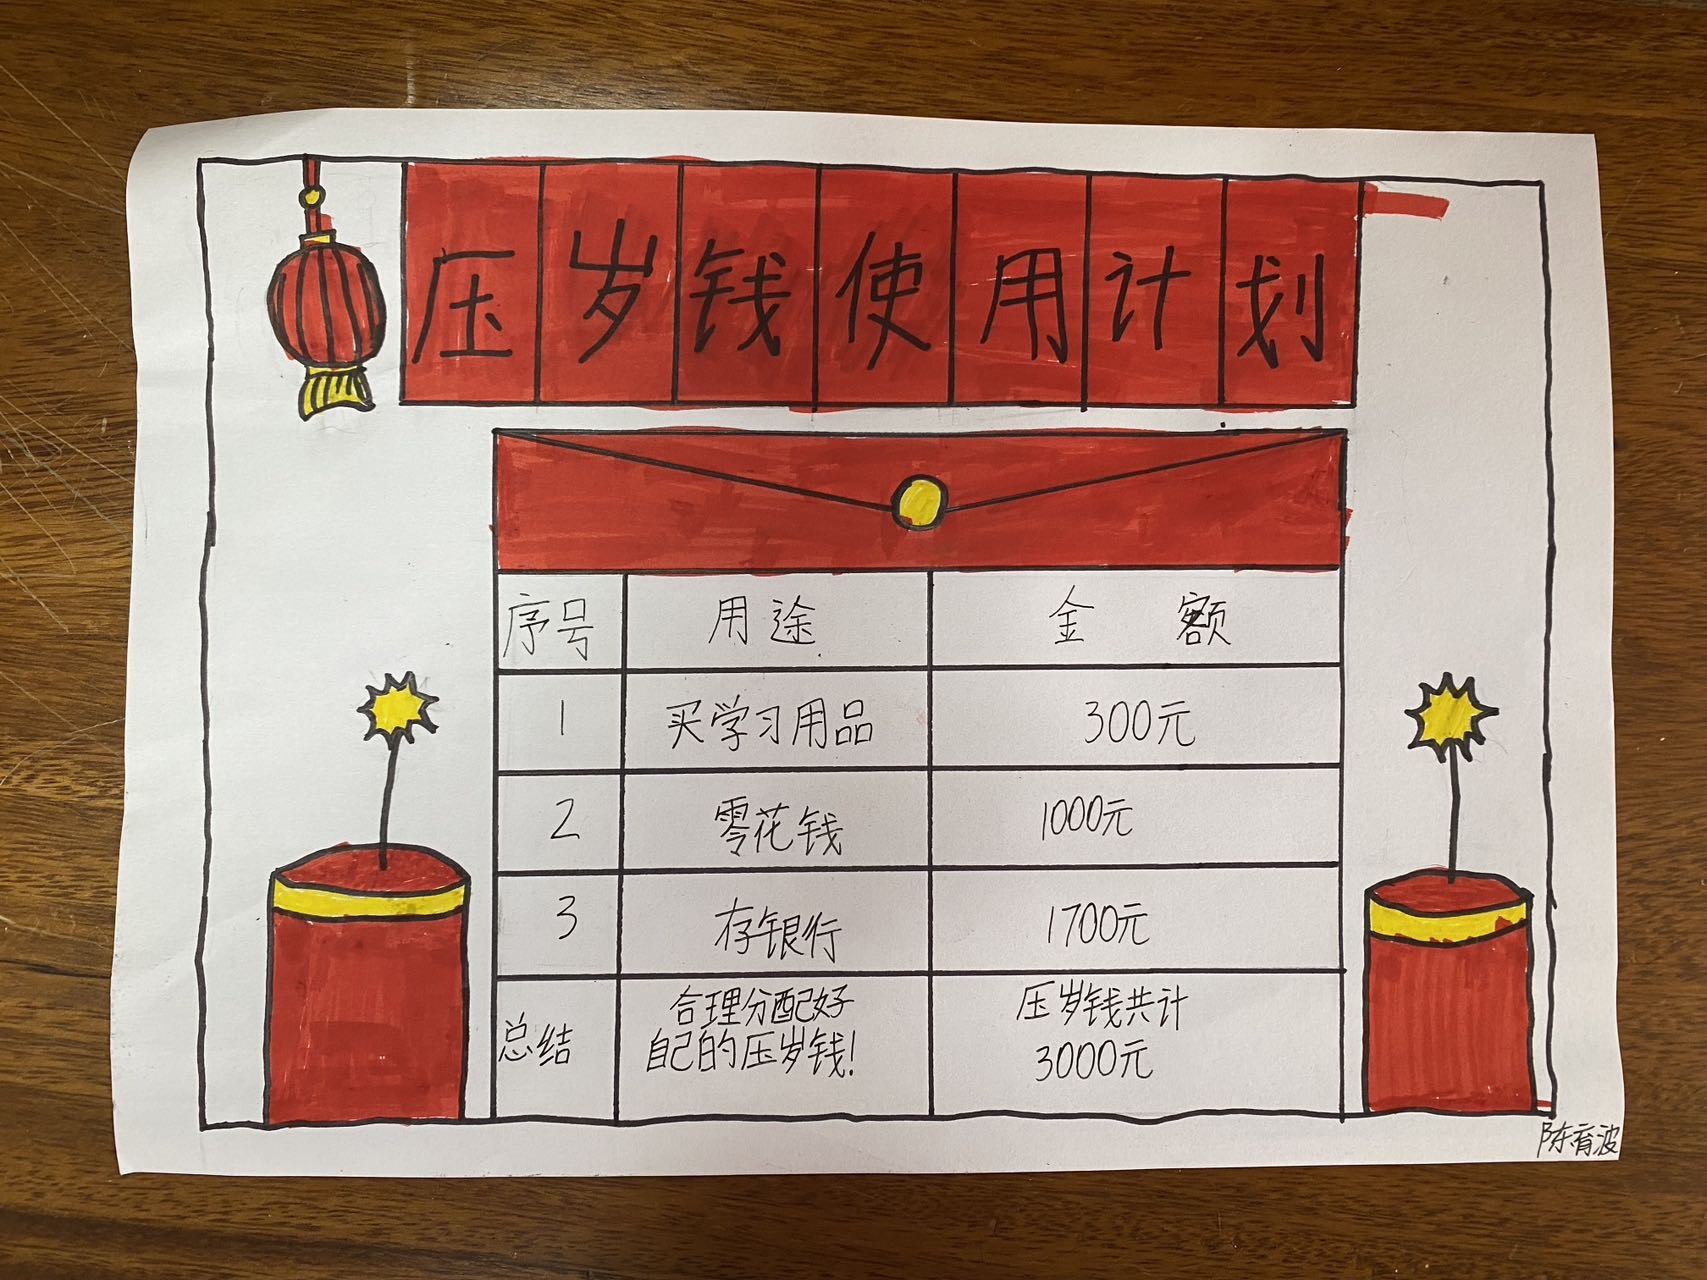 压岁钱使用计划
序号 用途 金额
1 买学习用品 300元
2 零花钱 1000元
3 存银行 1700元
总结 合理分配好 压岁钱共计
自己的压岁钱! 3000元
陈育波